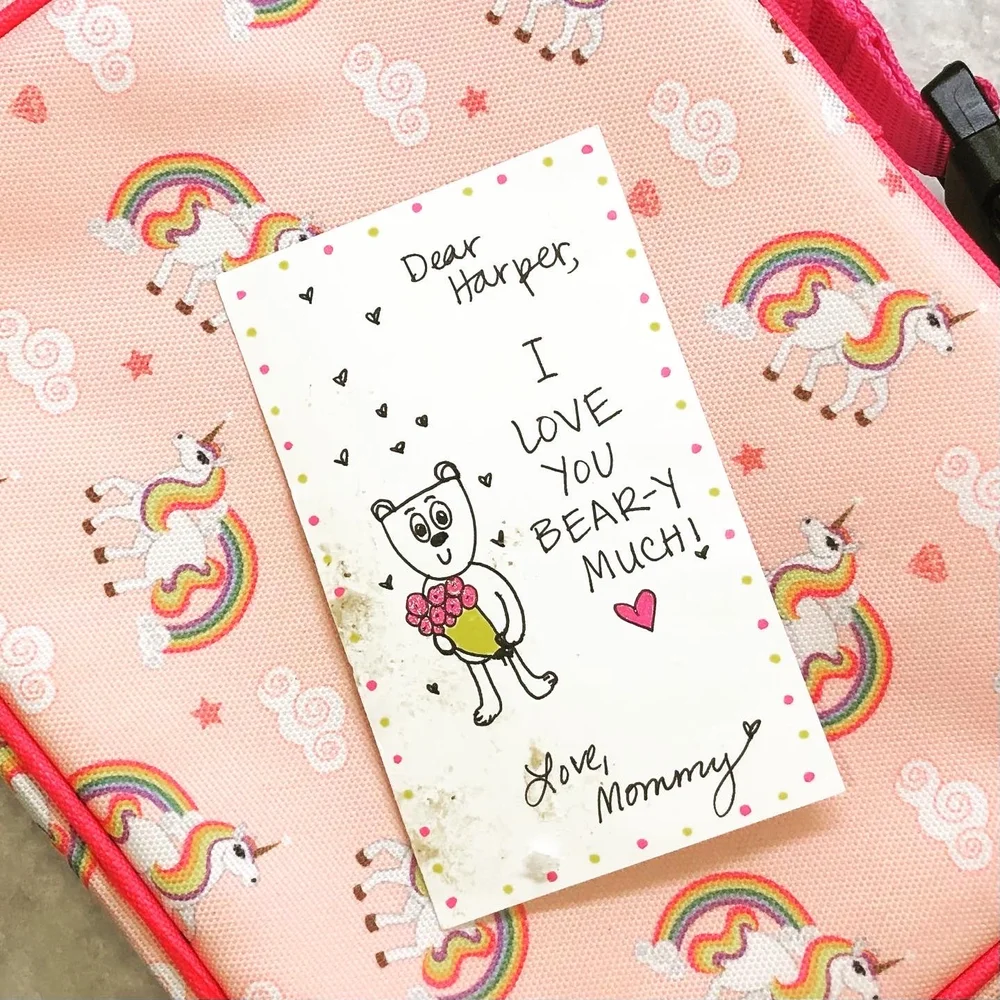 Dear
Harper,
I
LOVE
YOU
BEAR-Y
MUCH!
Love,
Mommy